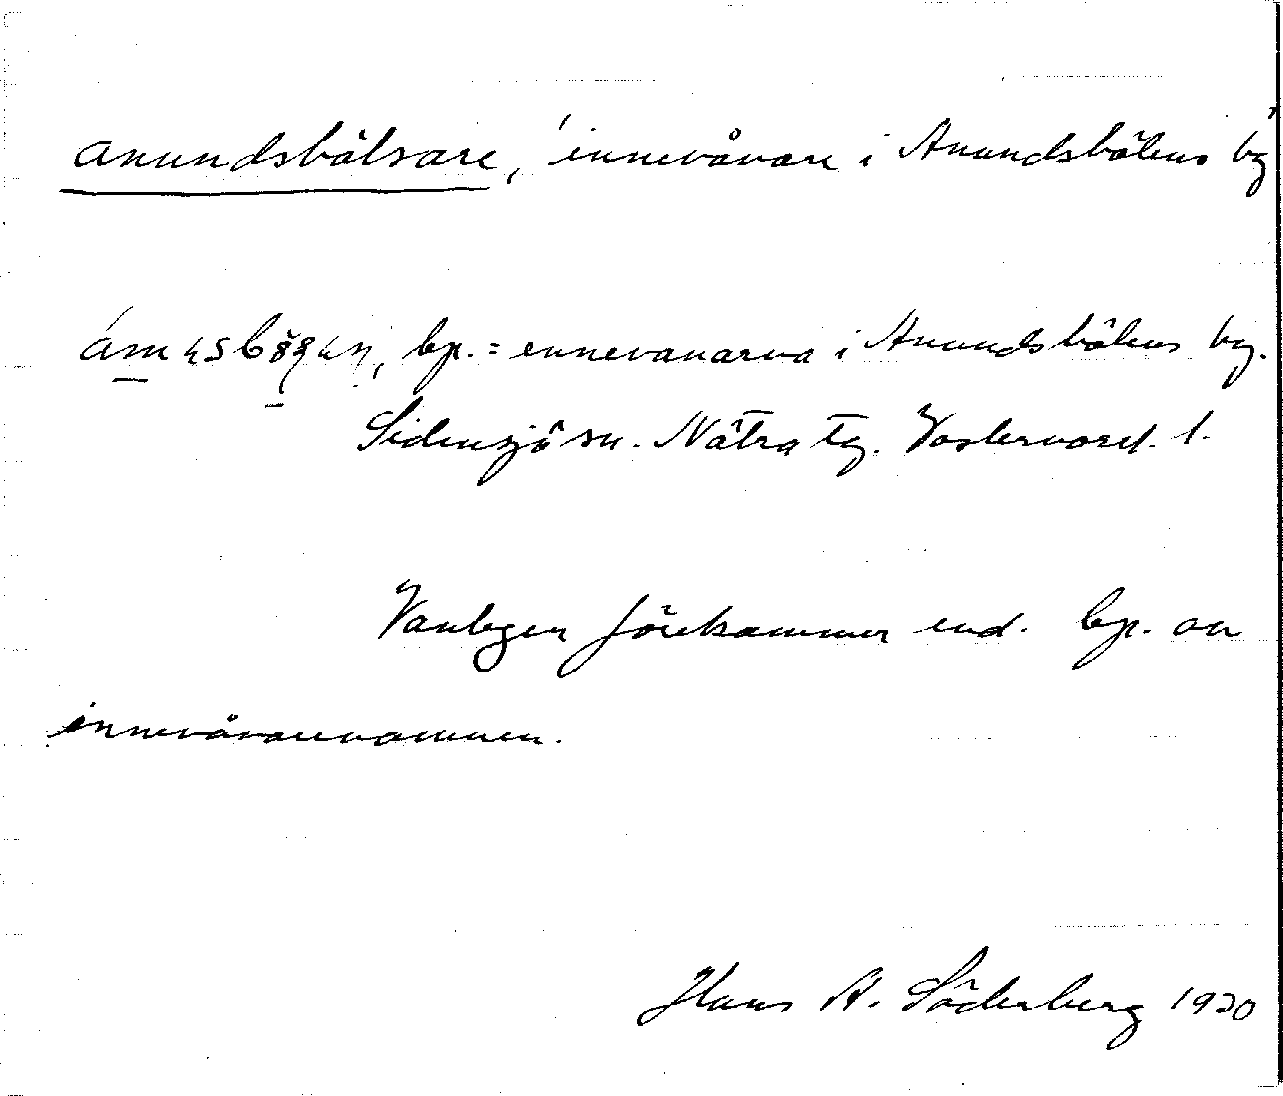 anundsbölsare, 'innevånare i Anundsböles by'
bp. = innevånarna i Anundsböles by.
Sidensjö sn. Nätra tg. Västernorrl. l.
Vanligen förekommer end. bp. av
innevånarenamnen.
Hans A. Söderberg 1920